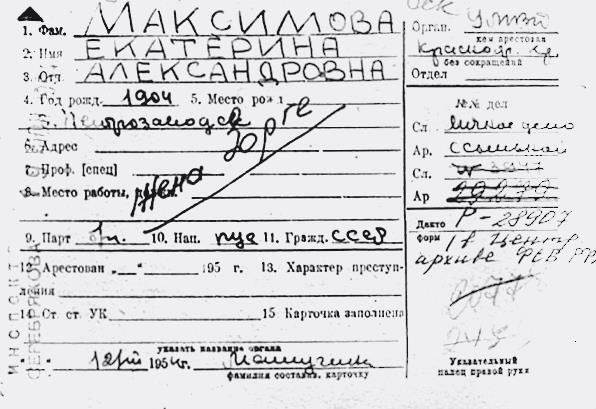 1. Фам. МАКСИМОВА
2. Имя ЕКАТЕРИНА
3. Отч. АЛЕКСАНДРОВНА
4. Год рожд. 1904 5. Место рожд.
г. Петрозаводск
6. Адрес
7. Проф. [спец]
8. Место работы,
Жена Зорге
9. Парт б/п. 10. Нац. рус 11. Гражд. СССР
12 Арестован „ “ 195 г. 13. Характер преступ-
ления
14 Ст. ст. УК 15 Карточка заполнена
указать название органа
12/VII 1954 г.
фамилия составив. карточку
Орган. УМВД
кем арестован
Краснояр. кр.
без сокращений
Отдел
№№ дел
Сл. Личное дело
Ар. ссыльной
Сл.
Ар
Дакто Р-28907
форм
1 в Центр
архиве ФСБ РФ
Указательный
палец правой руки
ИНСПЕКТ
СЕРЕБРЯКОВА